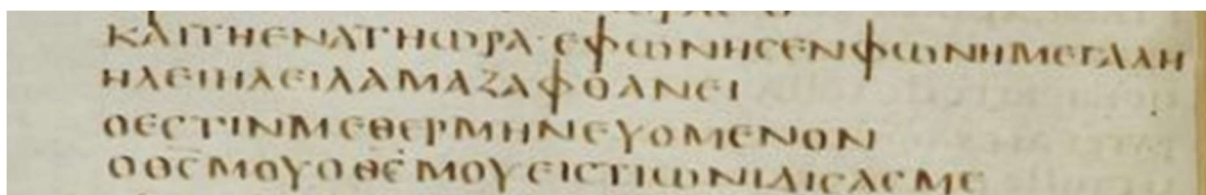 ΚΑΙΤΗΕΝΑΤΗΩΡΑ·ΕΦΩΝΗϹΕΝΦΩΝΗΜΕΓΑΛΗ
ΗΛΕΙΗΛΕΙΛΑΜΑΖΑΦΘΑΝΕΙ
ΟΕϹΤΙΝΜΕΘΕΡΜΗΝΕΥΟΜΕΝΟΝ
ΟΘ̅Ϲ̅ΜΟΥΟΘ̅Ϲ̅ΜΟΥΕΙϹΤΙΩΝΙΔΙϹΑϹΜΕ